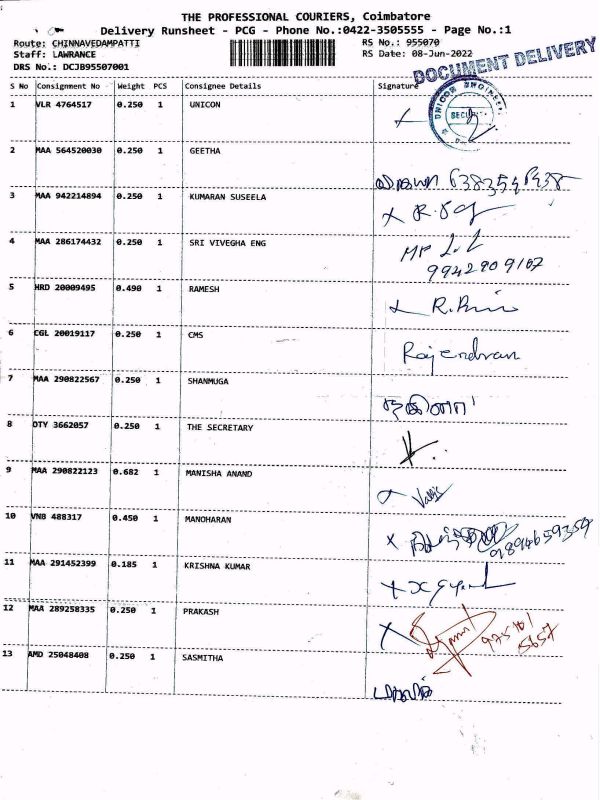 THE PROFESSIONAL COURIERS, Coimbatore
Delivery Runsheet - PCG - Phone No.:0422-3505555 - Page No.:1
Route: CHINNAVEDAMPATTI RS No.: 955070
Staff: LAWRANCE RS Date: 08-Jun-2022
DRS No.: DCJB95507001
DOCUMENT DELIVERY
S No Consignment No Weight PCS Consignee Details Signature
1 VLR 4764517 0.250 1 UNICON
2 MAA 564520030 0.250 1 GEETHA
3 MAA 942214894 0.250 1 KUMARAN SUSEELA
4 MAA 286174432 0.250 1 SRI VIVEGHA ENG
9942909107
5 HRD 20009495 0.490 1 RAMESH
6 CGL 20019117 0.250 1 CMS
Rajendran
7 MAA 290822567 0.250 1 SHANMUGA
8 DTY 3662057 0.250 1 THE SECRETARY
9 MAA 290822123 0.682 1 MANISHA ANAND
10 VNB 488317 0.450 1 MANOHARAN
9894659359
11 MAA 291452399 0.185 1 KRISHNA KUMAR
12 MAA 289258335 0.250 1 PRAKASH
13 AMD 25048408 0.250 1 SASMITHA